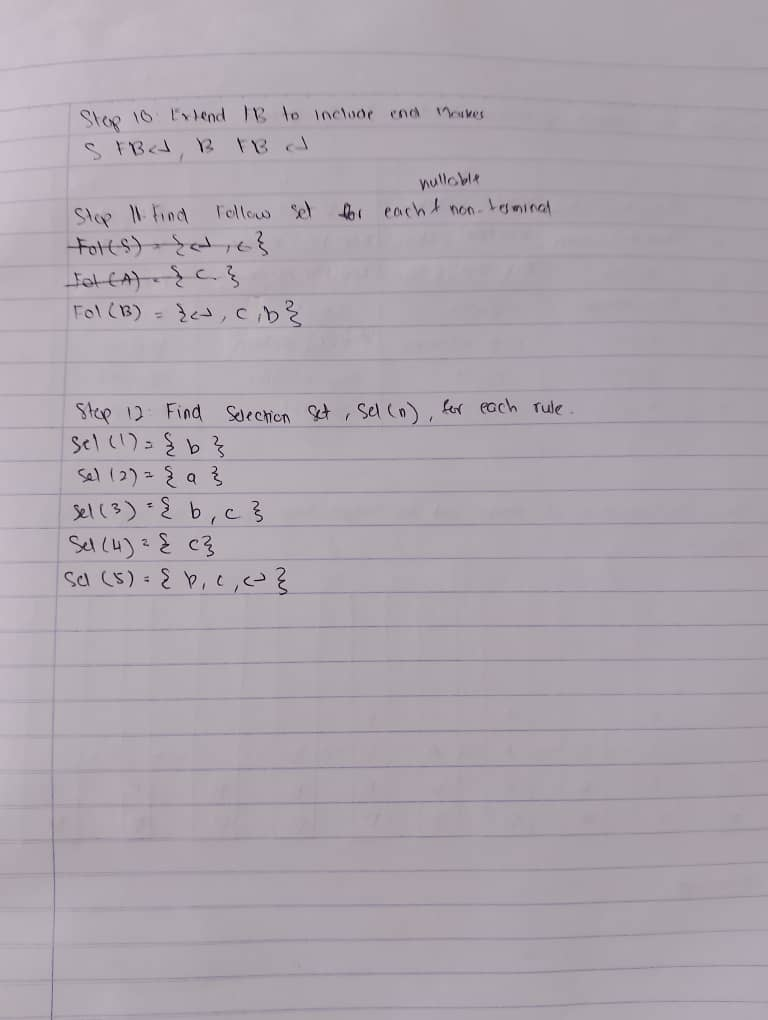 Step 10: Extend FB to include end markes
S FB ↵, B FB ↵
nullable
Step 11: Find Follow set for each non-terminal
Fol(S) = {↵, c}
Fol(A) = {c}
Fol(B) = {↵, c, b}
Step 12: Find Selection Set, Sel(n), for each rule.
Sel(1) = {b}
Sel(2) = {a}
Sel(3) = {b, c}
Sel(4) = {c}
Sel(5) = {b, c, ↵}